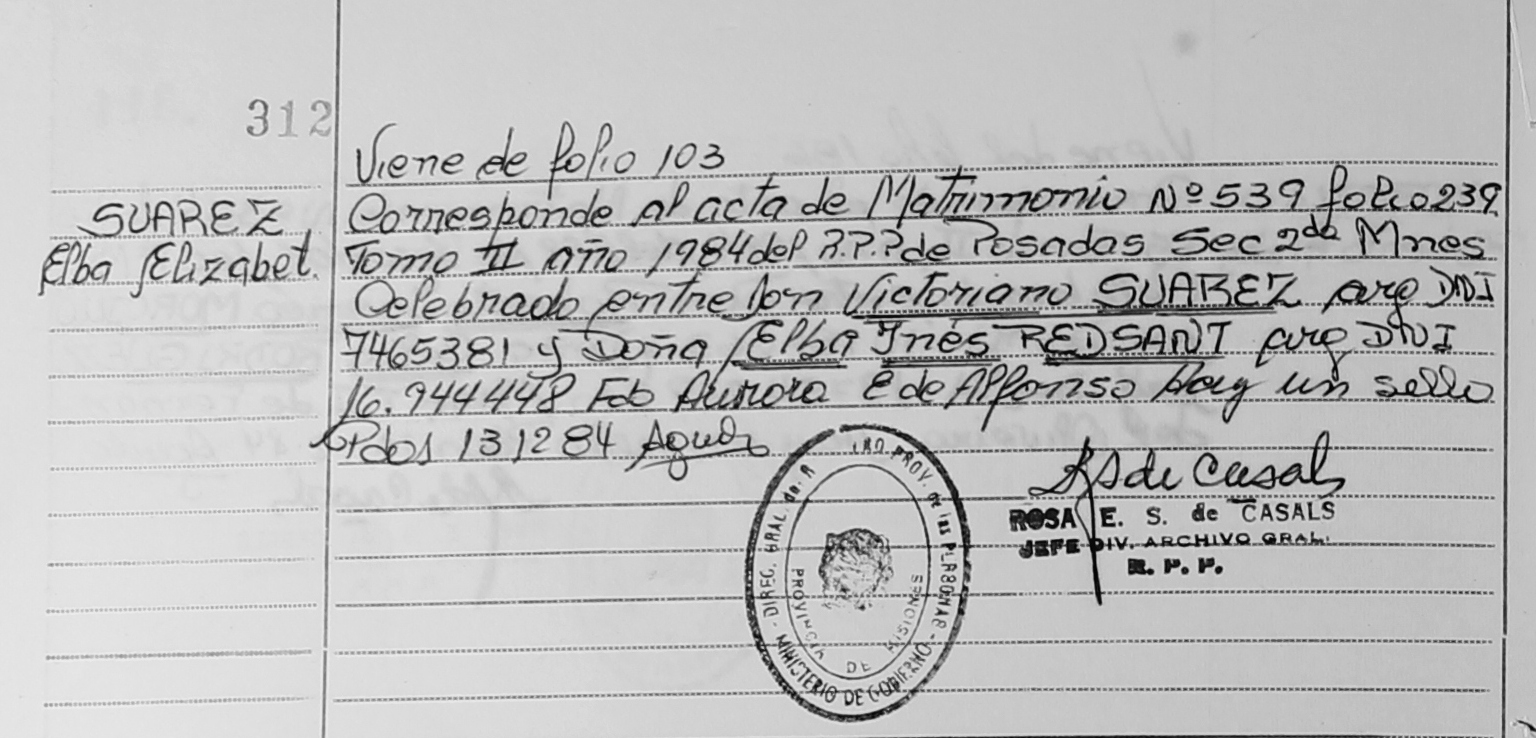 312
Viene de folio 103
SUAREZ,
Elba Elizabet.
Corresponde al acta de Matrimonio Nº 539 folio 239
Tomo II año 1984 del R.P.P de Posadas Sec 2da Mnes
Celebrado entre Don Victoriano SUAREZ arg DNI
7465381 y Doña Elba Inés REDSANT arg DNI
16.944448 Fdo Aurora E de Alfonso Hay un sello
Pdas 131284
ROSA E. S. de CASALS
JEFE DIV. ARCHIVO GRAL.
R. P. P.
DIREC. GRAL. de PROV. de las PERSONAS
MINISTERIO DE GOBIERNO
PROVINCIA DE MISIONES